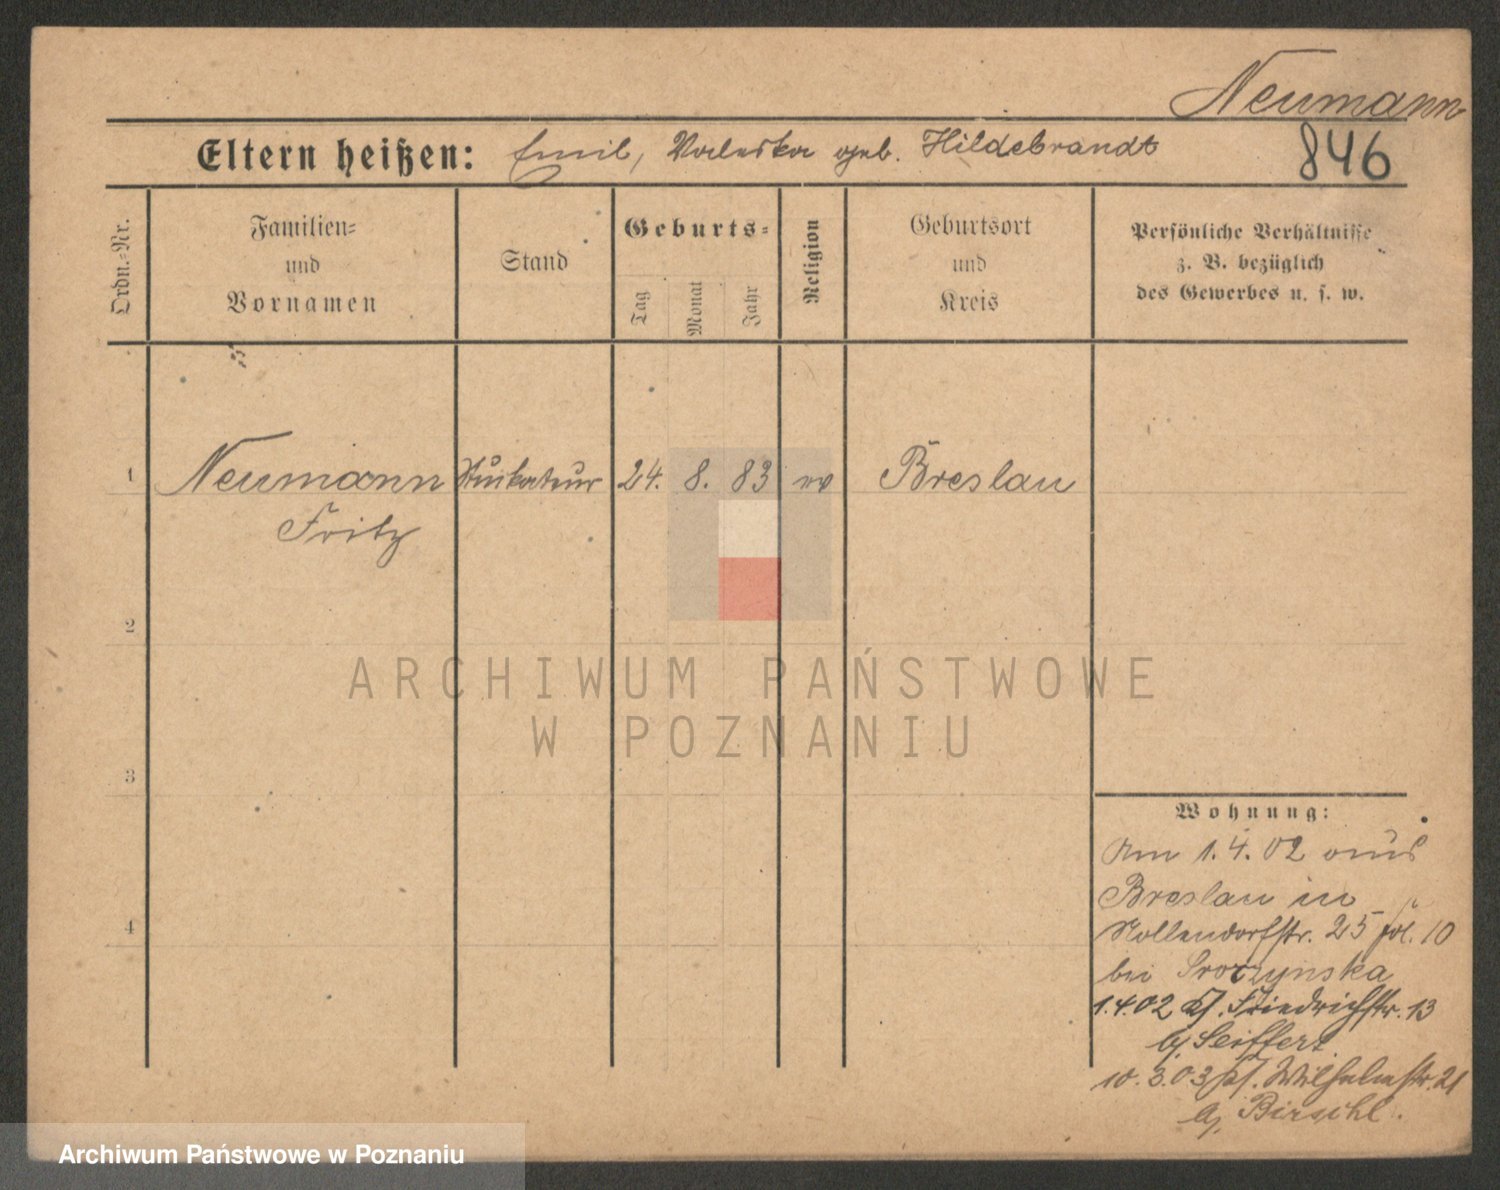 Neumann
846
Eltern heißen: Emil, Valeska geb. Hildebrandt
Ordn.-Nr.
Familien-
und
Vornamen
Stand
Geburts-
Tag
Monat
Jahr
Religion
Geburtsort
und
Kreis
Persönliche Verhältnisse
z. B. bezüglich
des Gewerbes u. s. w.
1 Neumann Stuckateur 24. 8. 83 ev Breslau
Fritz
2
3
4
Wohnung:
Am 1.4.02 aus
Breslau in
Nollendorfstr. 25 10
bei Sroczynska
1.4.02 Friedrichstr. 13
b/ Seiffert
10.3.03 Wilhelmstr. 21
b/ Birschl.
ARCHIWUM PAŃSTWOWE
W POZNANIU
Archiwum Państwowe w Poznaniu